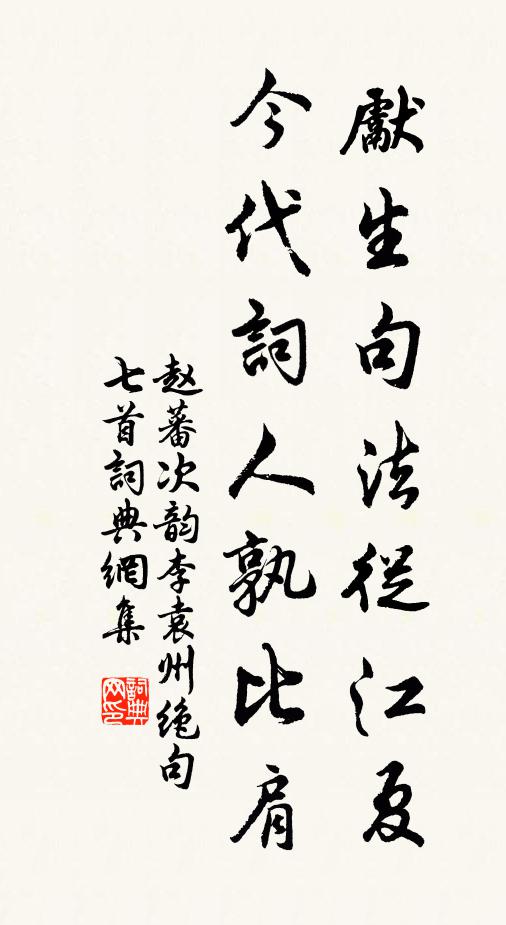 獻生句法從江夏
今代詞人孰比肩
赵蕃次韵李袁州绝句
七首詞典網集
詞典
网印